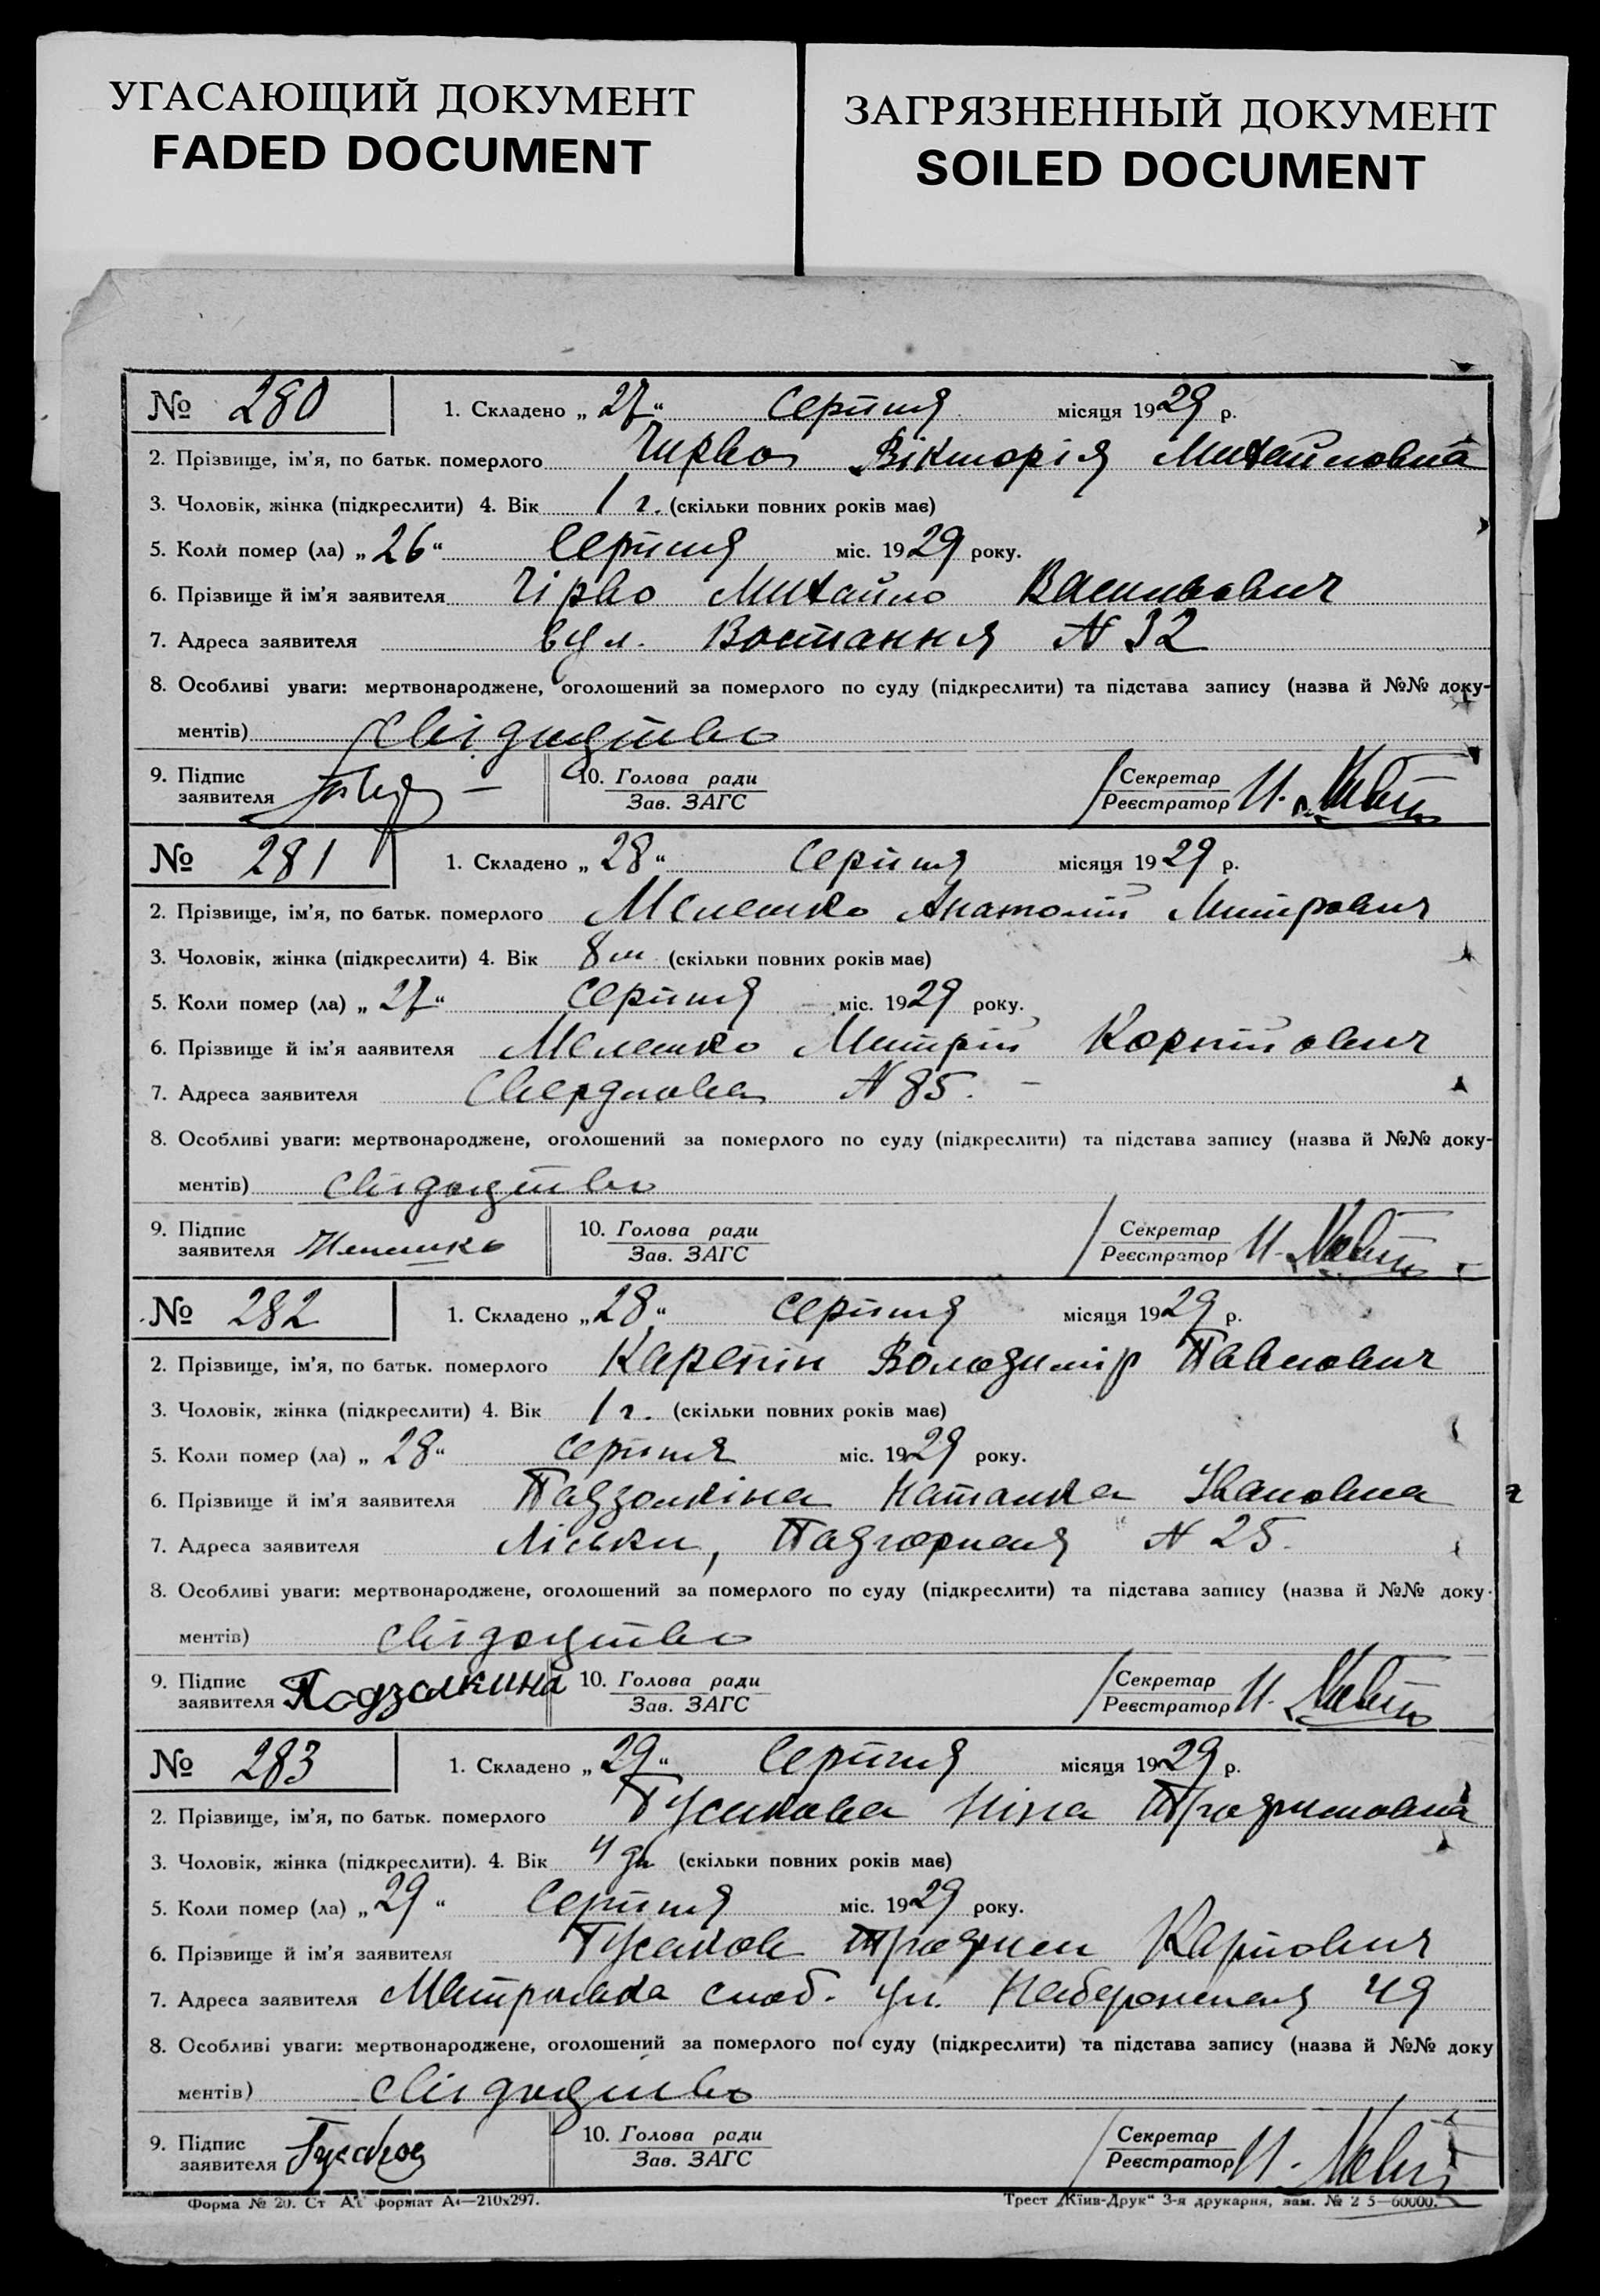 УГАСАЮЩИЙ ДОКУМЕНТ
FADED DOCUMENT
ЗАГРЯЗНЕННЫЙ ДОКУМЕНТ
SOILED DOCUMENT
№ 280 1. Складено „27“ серпня місяця 1929 р.
2. Прізвище, ім’я, по батьк. померлого Чирво Вікторія Михайловна
3. Чоловік, жінка (підкреслити) 4. Вік 1 г. (скільки повних років має)
5. Коли помер (ла) „26“ серпня міс. 1929 року.
6. Прізвище й ім’я заявителя Чірво Михайло Васильович
7. Адреса заявителя вул. Востання N 32
8. Особливі уваги: мертвонароджене, оголошений за померлого по суду (підкреслити) та підстава запису (назва й №№ доку-
ментів) свідоцтво
9. Підпис заявителя 10. Голова ради Зав. ЗАГС Секретар Реєстратор И.
№ 281 1. Складено „28“ серпня місяця 1929 р.
2. Прізвище, ім’я, по батьк. померлого Мелешко Анатолій Митрович
3. Чоловік, жінка (підкреслити) 4. Вік 8 м (скільки повних років має)
5. Коли помер (ла) „27“ серпня міс. 1929 року.
6. Прізвище й ім’я ааявителя Мелешко Митрій
7. Адреса заявителя Свердлова N 85.
8. Особливі уваги: мертвонароджене, оголошений за померлого по суду (підкреслити) та підстава запису (назва й №№ доку-
ментів) свідоцтво
9. Підпис заявителя Мелешко 10. Голова ради Зав. ЗАГС Секретар Реєстратор И.
№ 282 1. Складено „28“ серпня місяця 1929 р.
2. Прізвище, ім’я, по батьк. померлого Карепін Володимір Павлович
3. Чоловік, жінка (підкреслити) 4. Вік 1 г. (скільки повних років має)
5. Коли помер (ла) „28“ серпня міс. 1929 року.
6. Прізвище й ім’я заявителя Падзолкіна Наталка Івановна
7. Адреса заявителя Ліски, Падгорная N 25.
8. Особливі уваги: мертвонароджене, оголошений за померлого по суду (підкреслити) та підстава запису (назва й №№ доку-
ментів) свідоцтво
9. Підпис заявителя Подзолкина 10. Голова ради Зав. ЗАГС Секретар Реєстратор И.
№ 283 1. Складено „29“ серпня місяця 1929 р.
2. Прізвище, ім’я, по батьк. померлого Гусакова Ніна
3. Чоловік, жінка (підкреслити). 4. Вік 4 дн (скільки повних років має)
5. Коли помер (ла) „29“ серпня міс. 1929 року.
6. Прізвище й ім’я заявителя Гусаков Карпович
7. Адреса заявителя слоб. ул. Набережная 49
8. Особливі уваги: мертвонароджене, оголошений за померлого по суду (підкреслити) та підстава запису (назва й №№ доку
ментів) свідоцтво
9. Підпис заявителя 10. Голова ради Зав. ЗАГС Секретар Реєстратор И.
Форма № 20. Ст формат А4—210х297. Трест „Київ-Друк“ 3-я друкарня, зам. 60000.